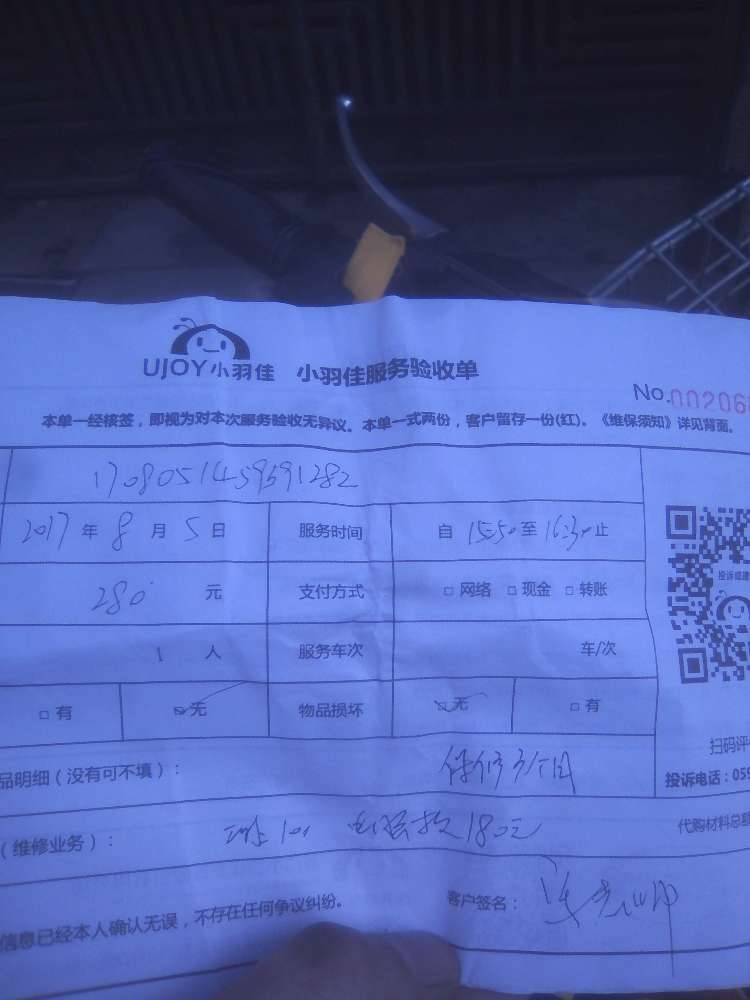 UJOY小羽佳 小羽佳服务验收单
No.002060
本单一经核签，即视为对本次服务验收无异议。本单一式两份，客户留存一份(红)。《维保须知》详见背面。
2017 年 8 月 5 日 服务时间 自 15:50 至 16:30 止
280 元 支付方式 □ 网络 □ 现金 □ 转账
1 人 服务车次 车/次
□ 有 □ 无 物品损坏 □ 无 □ 有
扫码评
品明细（没有可不填）： 保修3个月
投诉电话：059
（维修业务）： 180元
代购材料总额
客户签名：
信息已经本人确认无误，不存在任何争议纠纷。